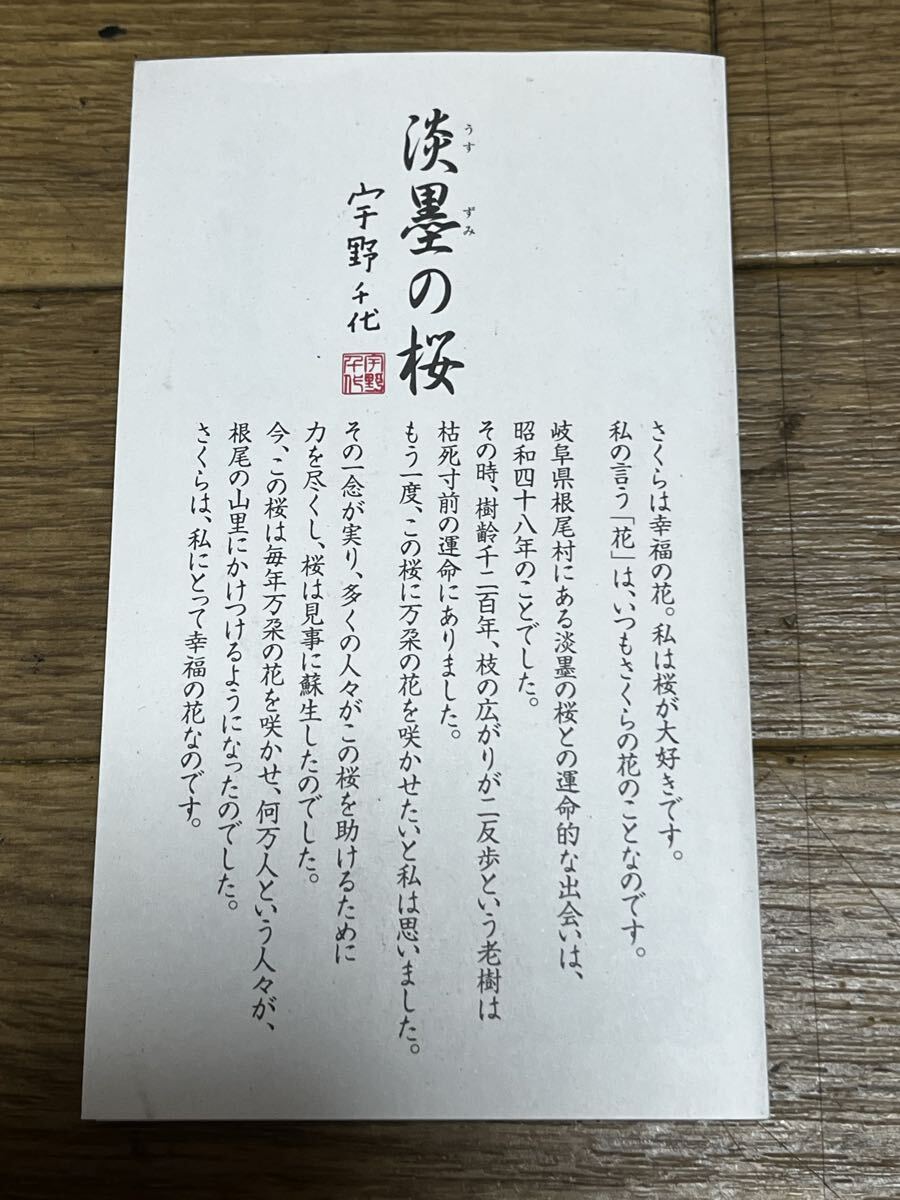 淡墨の桜
うす
ずみ
宇野千代
宇野
千代
さくらは幸福の花。私は桜が大好きです。
私の言う「花」は、いつもさくらの花のことなのです。
岐阜県根尾村にある淡墨の桜との運命的な出会いは、
昭和四十八年のことでした。
その時、樹齢千二百年、枝の広がりが二反歩という老樹は
枯死寸前の運命にありました。
もう一度、この桜に万朶の花を咲かせたいと私は思いました。
その一念が実り、多くの人々がこの桜を助けるために
力を尽くし、桜は見事に蘇生したのでした。
今、この桜は毎年万朶の花を咲かせ、何万人という人々が、
根尾の山里にかけつけるようになったのでした。
さくらは、私にとって幸福の花なのです。